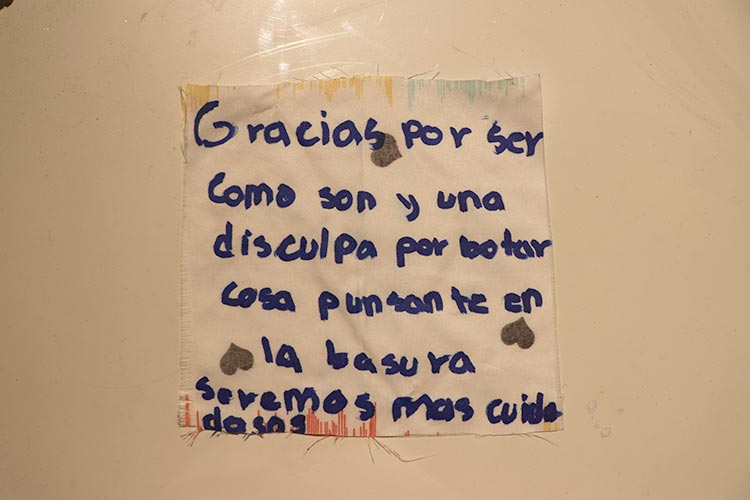 Gracias por ser
como son y una
disculpa por botar
cosa punsante en
la basura
seremos mas cuida
dosos